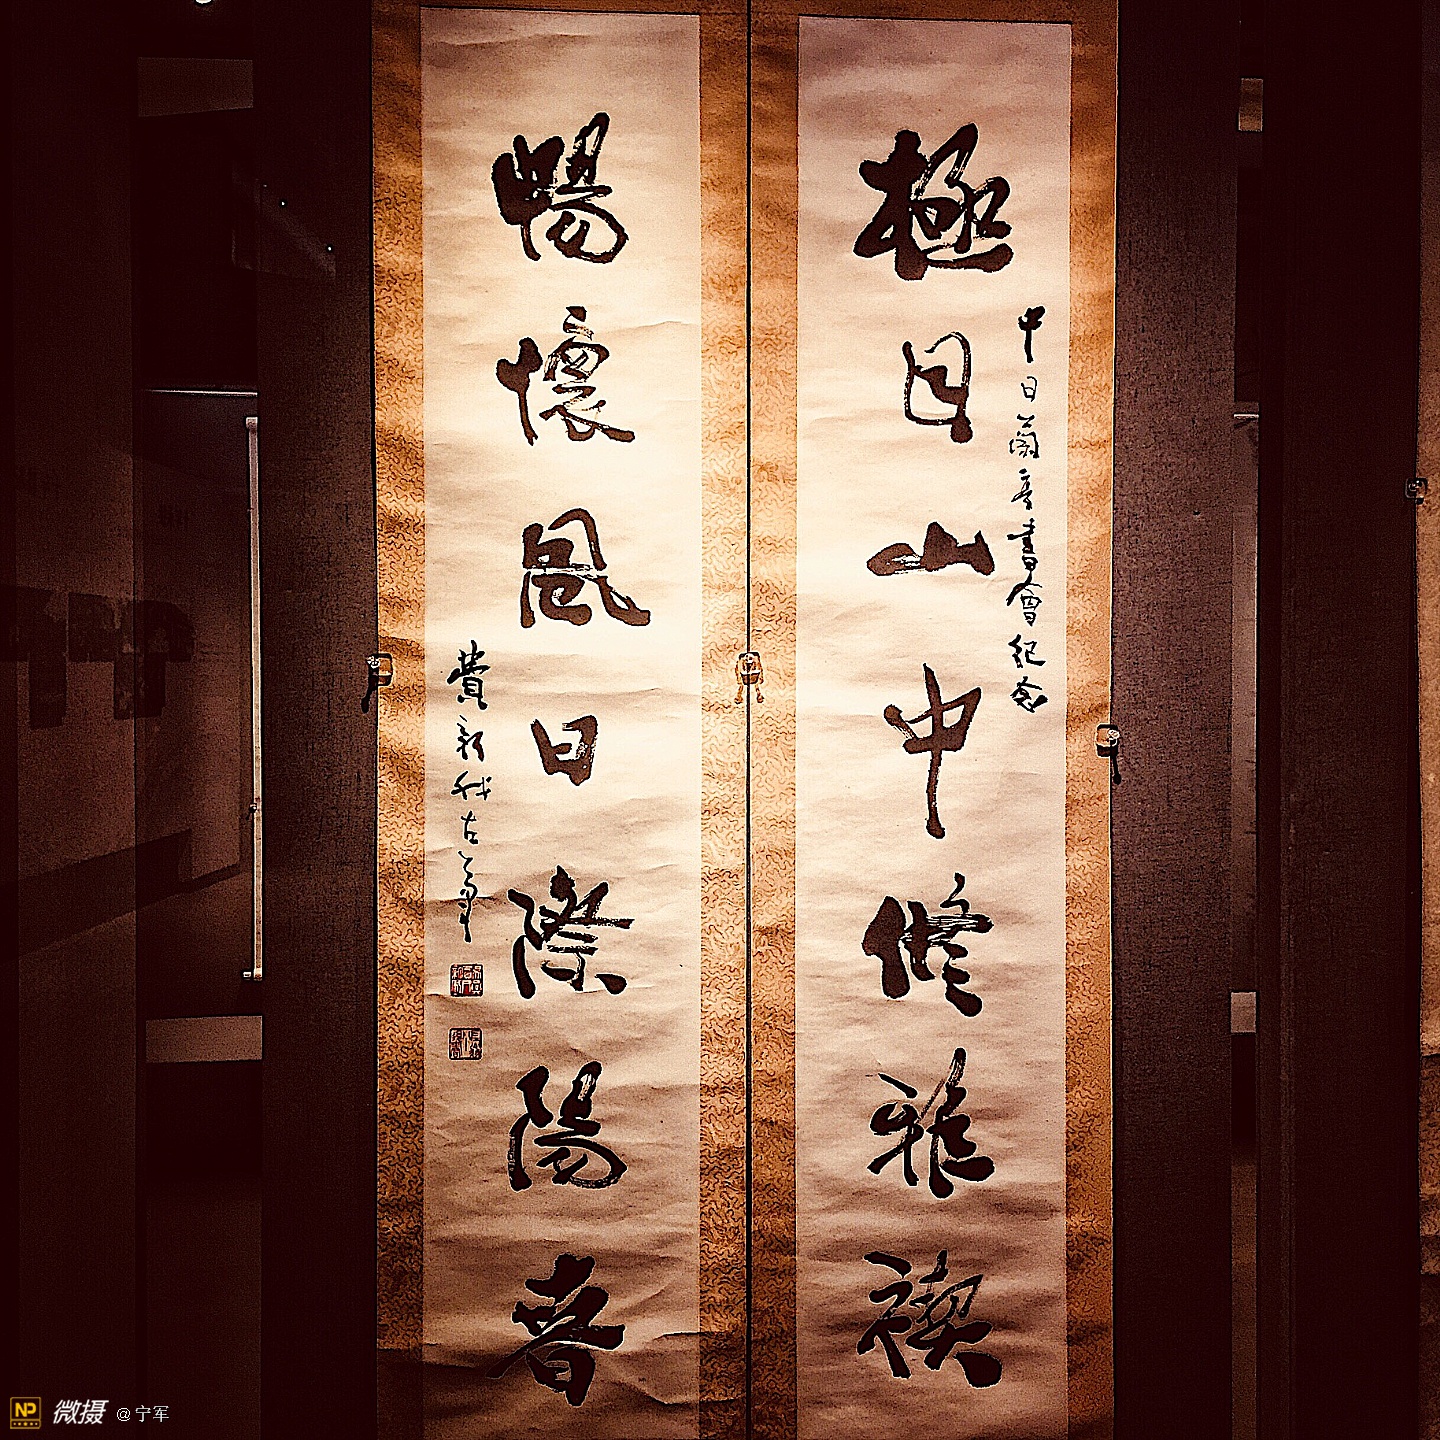 極目山中修雅禊
中日蘭亭書會紀念
暢懷風日際陽春
費新我左筆
NP 微摄 @宁军